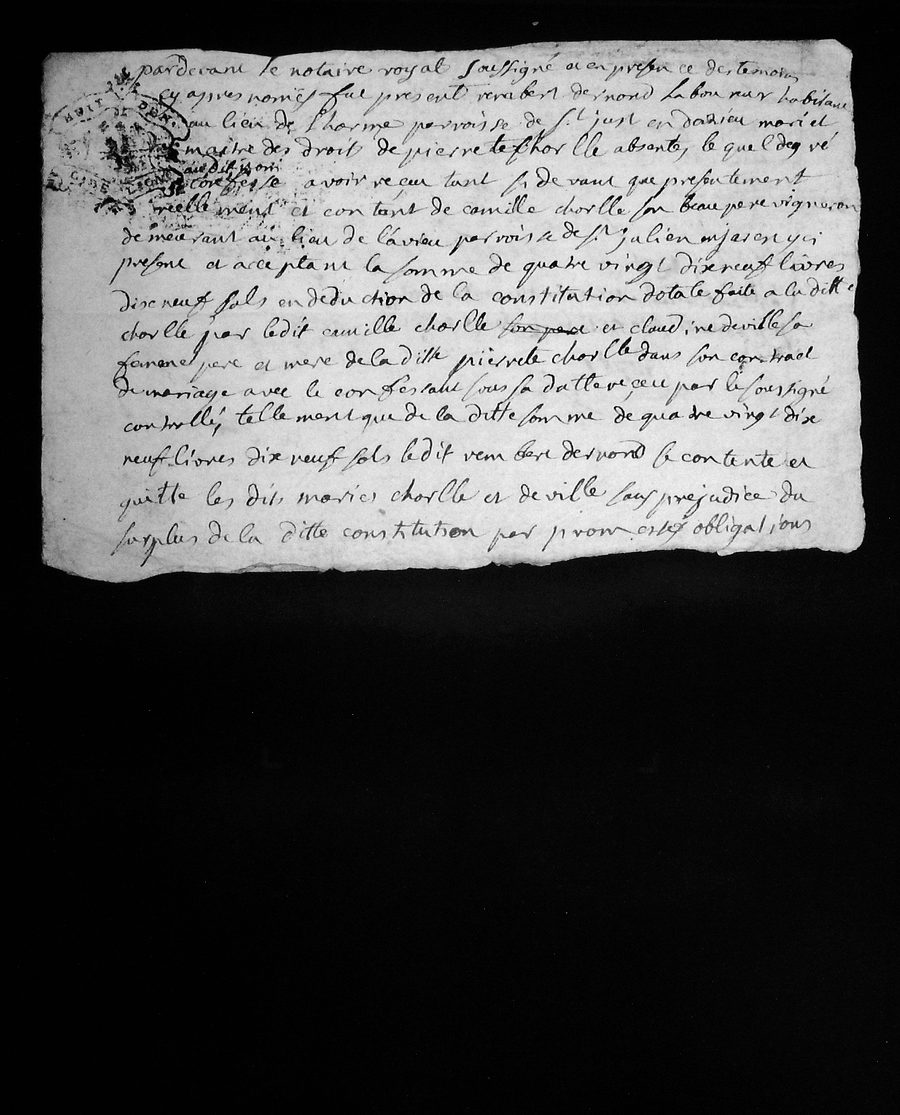 HUIT DEN.
pardevant le notaire royal soussigné et en presence des temoins
cy apres només fut present rembert dernond laboureur habitant
au lieu de l'harme parroisse de St just en doizieu mari et
maitre des droits de pierrette chorlle absente, le quel de gré
au dit nom
confesse avoir reçeu tant si devant que presentement
reellement et contant de camille chorlle son beau pere vigneron
demeurant au lieu de lavieu parroisse de St julien en jarest yci
present et acceptant la somme de quatre vingt dixneuf livres
dixneuf sols en deduction de la constitution dotale faite a la ditte
chorlle par ledit camille chorlle son pere et claudine deville sa
femme pere et mere de la ditte pierrette chorlle dans son contract
de mariage avec le confessant sous sa datte reçeu par le soussigné
controllé, tellement que de la ditte somme de quatre vingt dix
neuf livres dix neuf sols ledit rembert dernond se contente et
quitte les dits mariés chorlle et deville sans prejudice du
surplus de la ditte constitution par promesses obligations